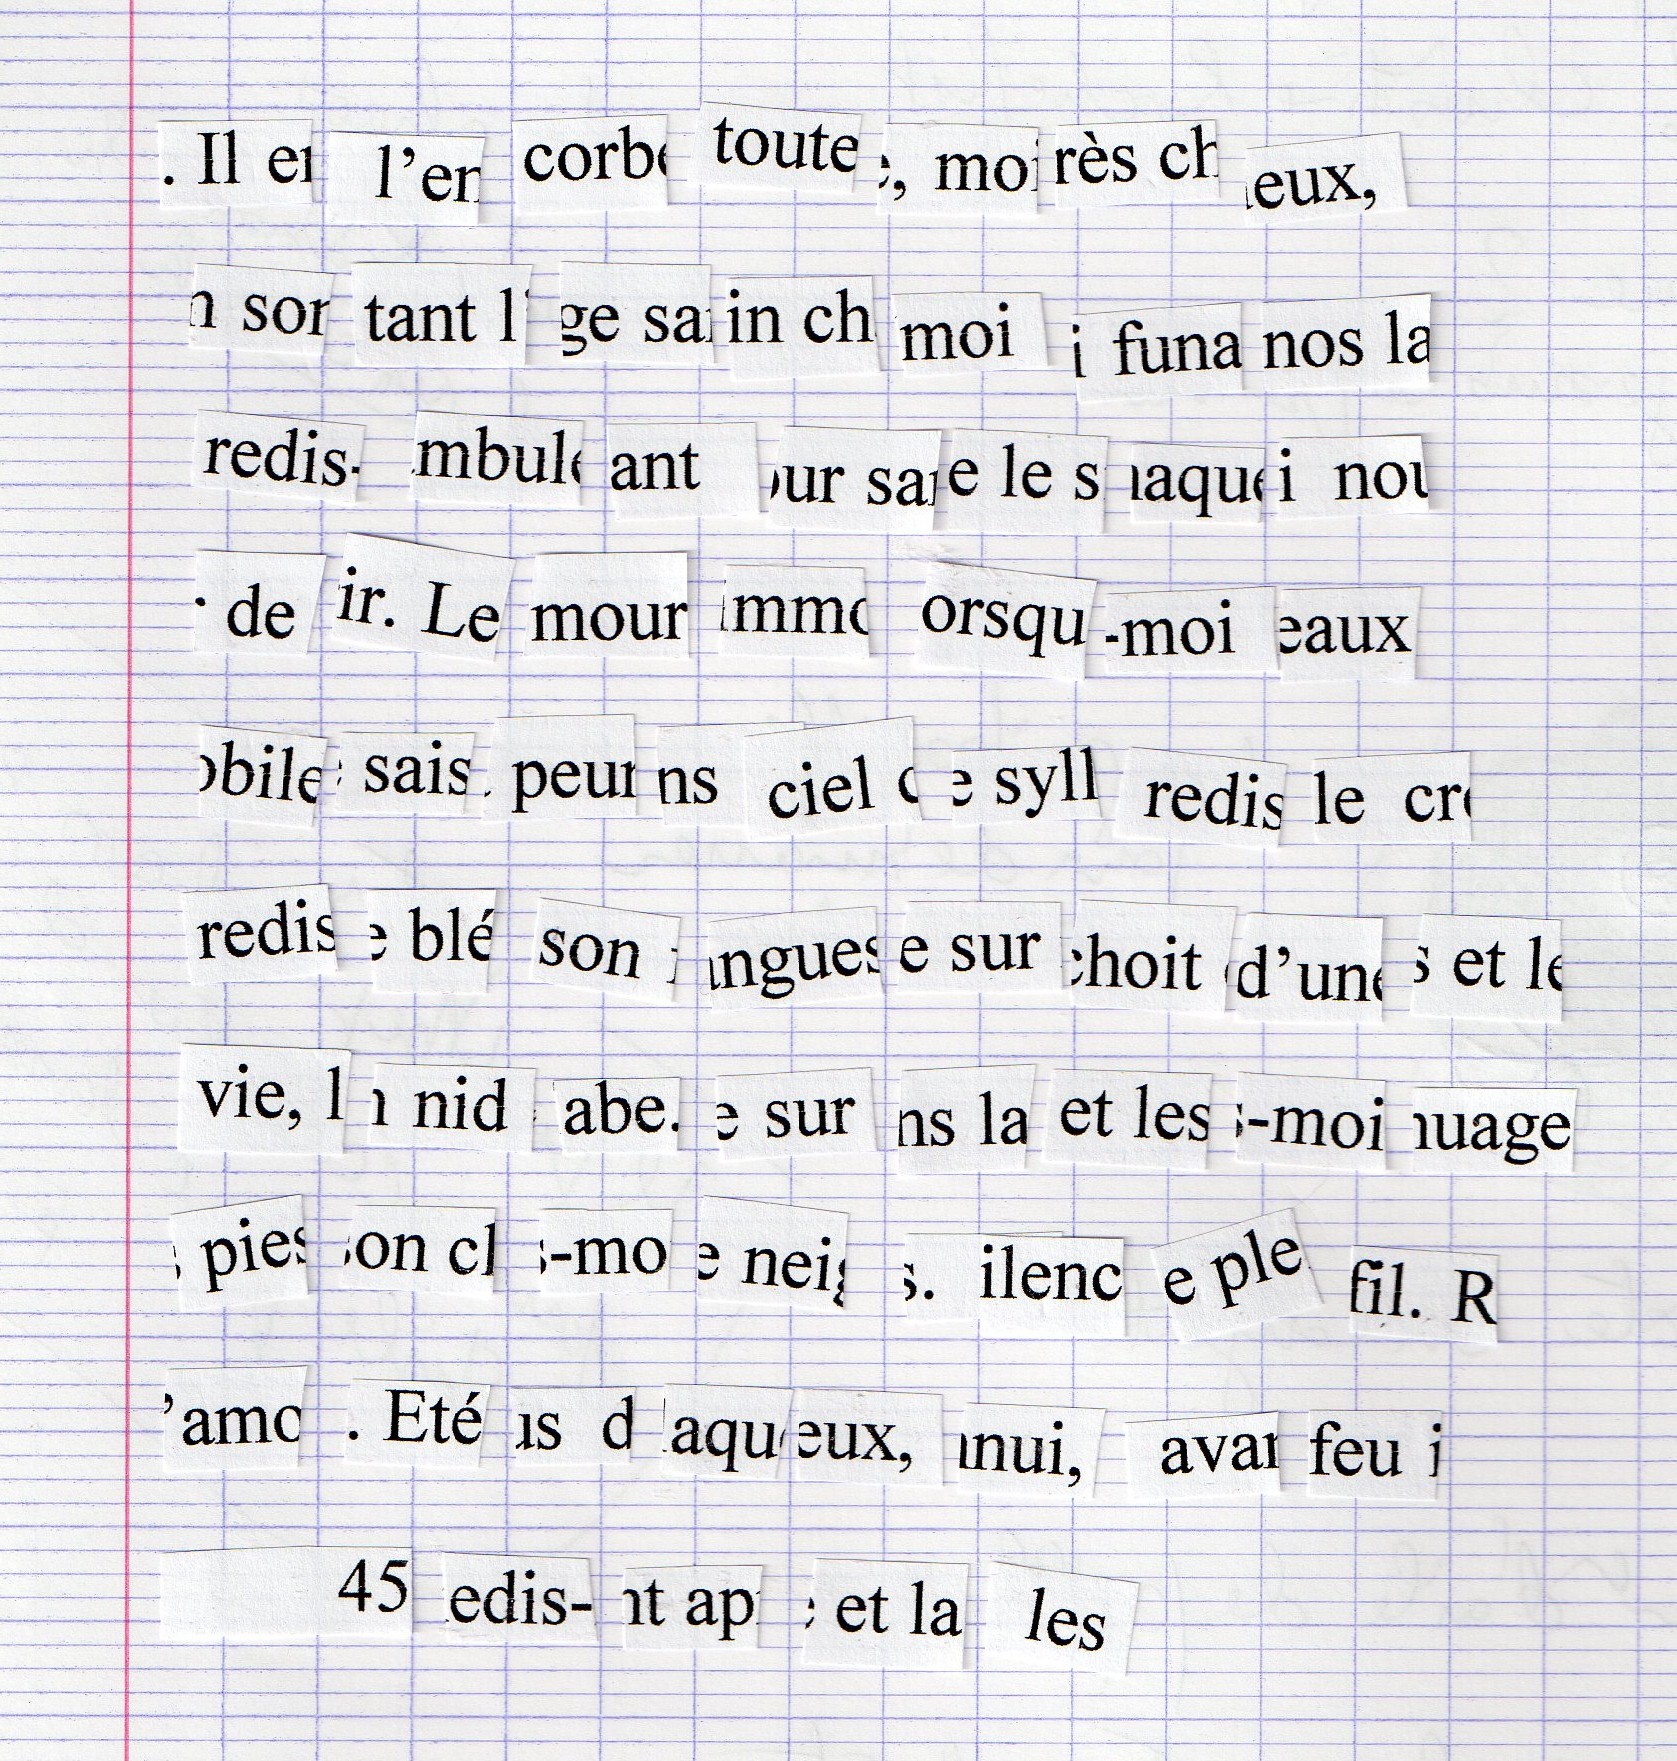 . Il en l’en corbe toute e, moi rès ch eux,
n sor tant l’ ge sai in ch moi i funa nos la
redis- mbule ant our sai e le s naque i nou
r de ir. Le mour immo orsqu -moi eaux
obile e sais . peur ns ciel d e syll redis le cre
redis e blé son i angues e sur choit d’une s et le
vie, l n nid abe. e sur ns la et les s-moi nuage
s pies son cl s-mo e neig s. ilenc e ple fil. R
’amo . Eté us d laqu eux, nnui, avan feu i
45 edis- nt ap e et la les